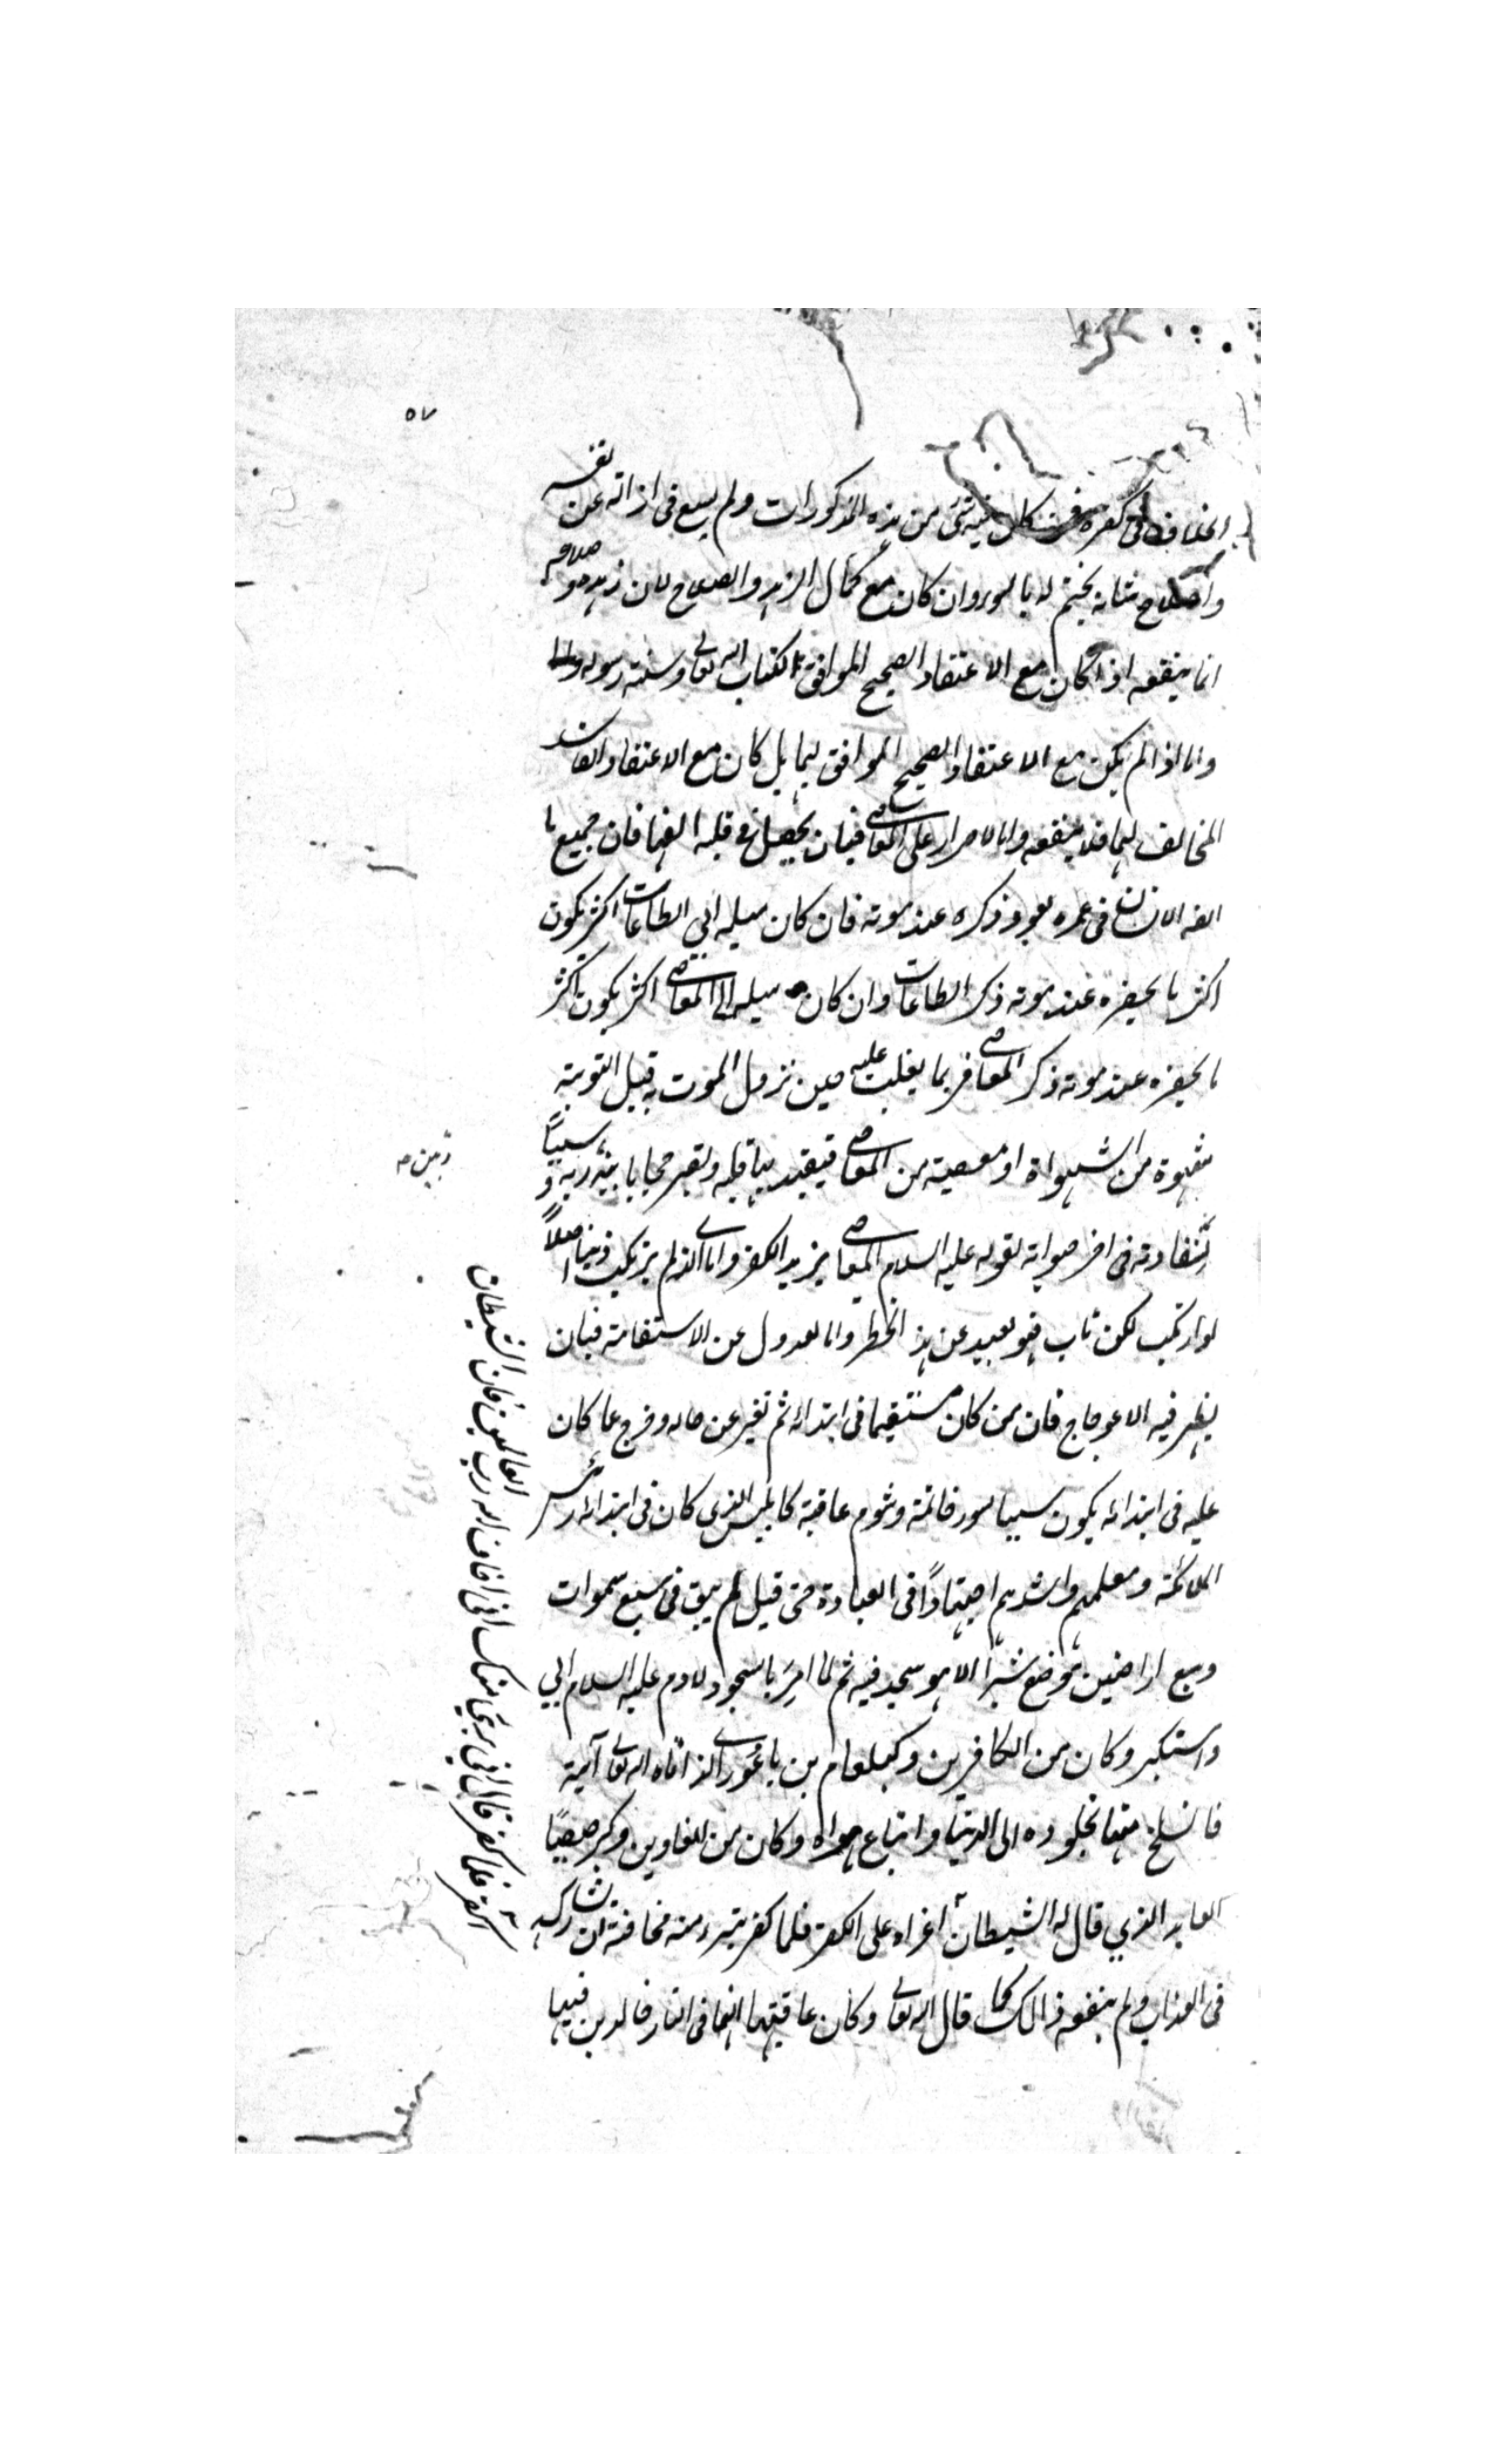 ٥٧
كفره فمن كان فيه شئ من هذه المذكورات ولم يسع فى ازالته عن نفسه
واصلاح شانه يختم له بالسوء وان كان مع كمال الزهد والصلاح لان زهده وصلاحه
انما ينفعه اذا كان مع الاعتقاد الصحيح الموافق لكتاب الله تعالى وسنة رسوله
واما اذا لم يكن مع الاعتقاد الصحيح الموافق لهما بل كان مع الاعتقاد الفاسد
المخالف لهما فلا ينفعه واما الاصرار على المعاصى فبان يحصل فى قلبه الفها فان جميع ما
الفه الانسان فى عمره يعود ذكره عند موته فان كان ميله الى الطاعات اكثر يكون
اكثر ما يحضره عند موته ذكر الطاعات وان كان ميله الى المعاصى اكثر يكون اكثر
ما يحضره عند موته ذكر المعاصى فربما يغلب عليه حين نزول الموت به قبل التوبة
شهوة من الشهواة او معصية من المعاصى فيتقيد بها قلبه وتصير حجابا بينه وبين ربه وسببًا
لشقاوته فى اخر حياته لقوله عليه السلام المعاصى يزيد الكفر واما الذى لم يرتكب ذنبا اصلاً
او ارتكب لكن تاب فهو بعيد عن هذا الخطر واما العدول عن الاستقامة فبان
يظهر فيه الاعوجاج فان من كان مستقيما فى ابتدائه ثم تغير عن حاله وخرج عما كان
عليه فى ابتدائه يكون سببا لسوء خاتمة وشوم عاقبة كابليس الذي كان فى ابتدائه رئيس
الملائكة ومعلمهم واشدهم اجتهادًا فى العبادة حتى قيل لم يبق فى سبع سموات
وسبع اراضين موضع شبرًا الا هو سجد فيه ثم لما اُمِرَ بالسجود لادم عليه السلام ابي
واستكبر وكان من الكافرين وكبلعام بن باعُورا الذى اتاه الله تعالى آيته
فانسلخ منها بخلوده الى الدنيا واتباع هواه وكان من الغاوين وكبرصيصًا
العابد الذي قال له الشيطان اغراه على الكفر فلما كفر تبرء منه مخافة ان يشاركه
فى العذاب ولم ينفعه ذالك كما قال الله تعالى وكان عاقبتهما انهما فى النار خالدين فيها
وبين صح
اكفر فلما كفر قال انى برئ منك انى اخاف الله رب العالمين فان الشيطان